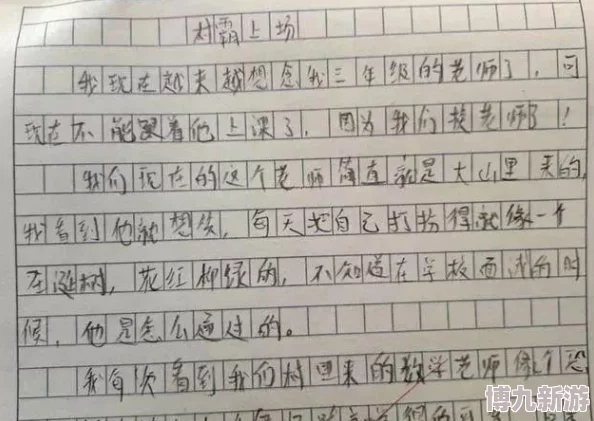 村霸上场
我现在越来越想念我三年级的老师了，可
现在不能跟着他上课了，因为我们换老师了！
我们现在的这个老师简直就是大山里来的，
我看到他就想笑，每天把自己打扮得就像一个
圣诞树，花红柳绿的，不知道在学校面试的时
候，他是怎么通过的。
我每次看到我们村里来的数学老师像个恐
博九新游